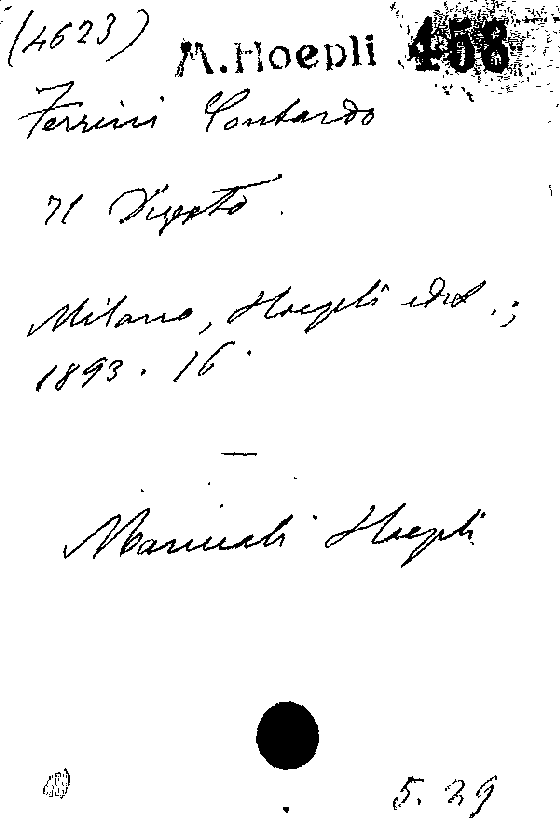 (4623) M. Hoepli 458
Ferrini Contardo
Il Digesto.
Milano, Hoepli edit.;
1893. 16°
—
Manuali Hoepli
5. 29